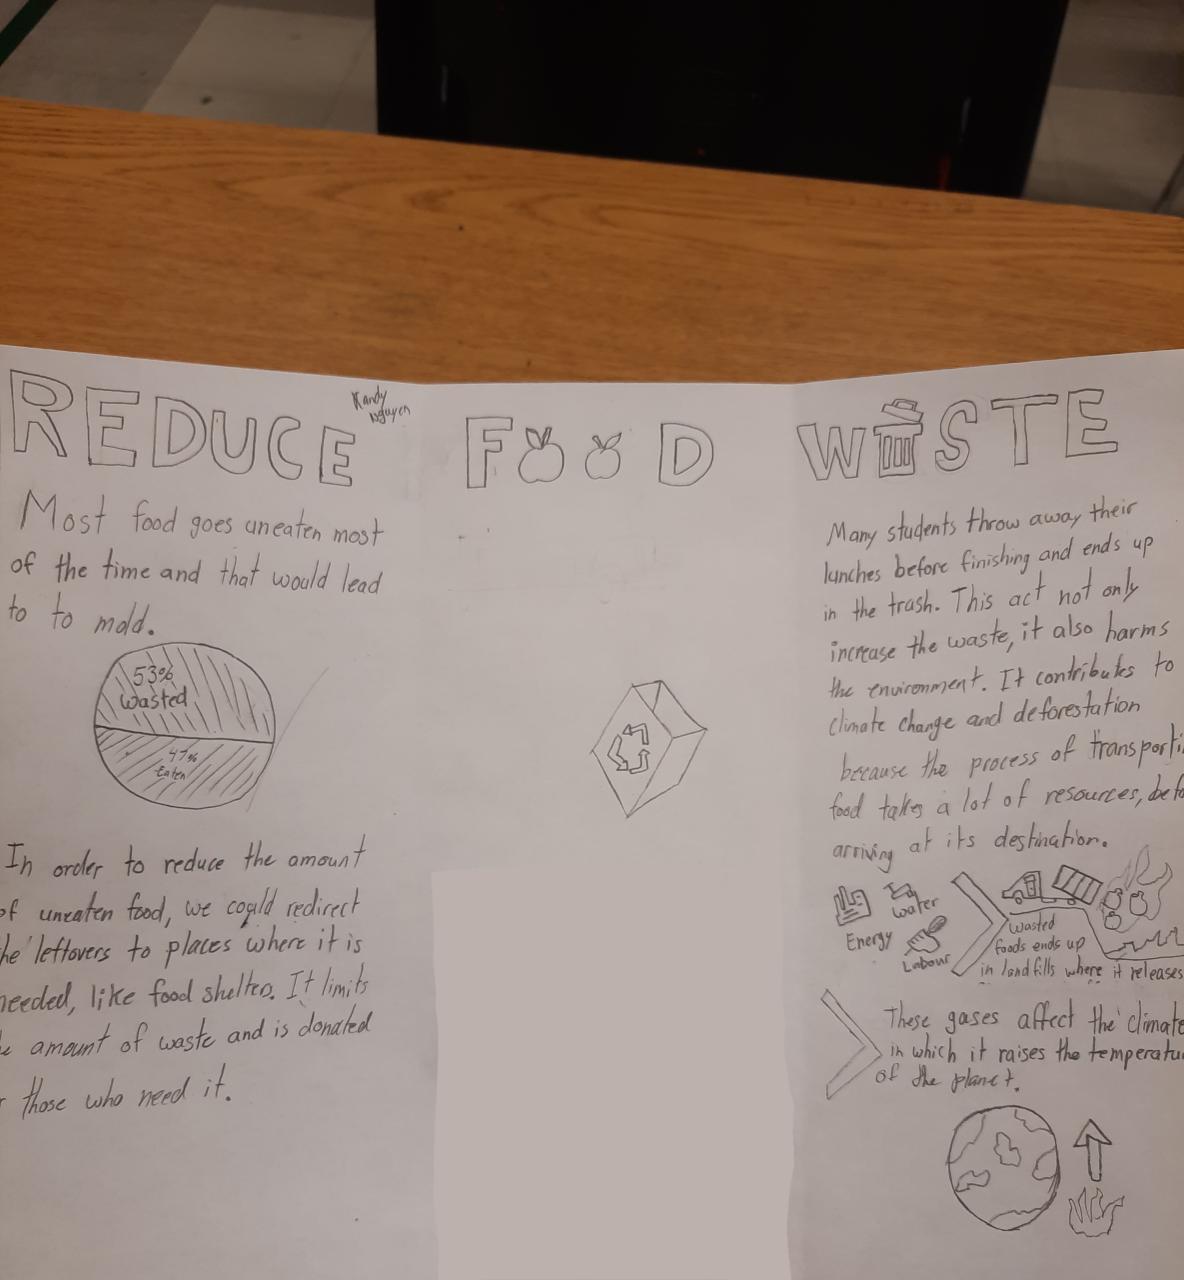 REDUCE
Kandy
Nguyen
FOOD
WASTE
Most food goes uneaten most
of the time and that would lead
to to mold.
53%
Wasted
47%
Eaten
In order to reduce the amount
of uneaten food, we could redirect
the leftovers to places where it is
needed, like food shelter. It limits
amount of waste and is donated
those who need it.
Many students throw away their
lunches before finishing and ends up
in the trash. This act not only
increase the waste, it also harms
the environment. It contributes to
climate change and deforestation
because the process of transporti
food takes a lot of resources, befo
arriving at its destination.
Energy
water
Labour
Wasted
foods ends up
in landfills where it releases
These gases affect the climate
in which it raises the temperatu
of the planet.